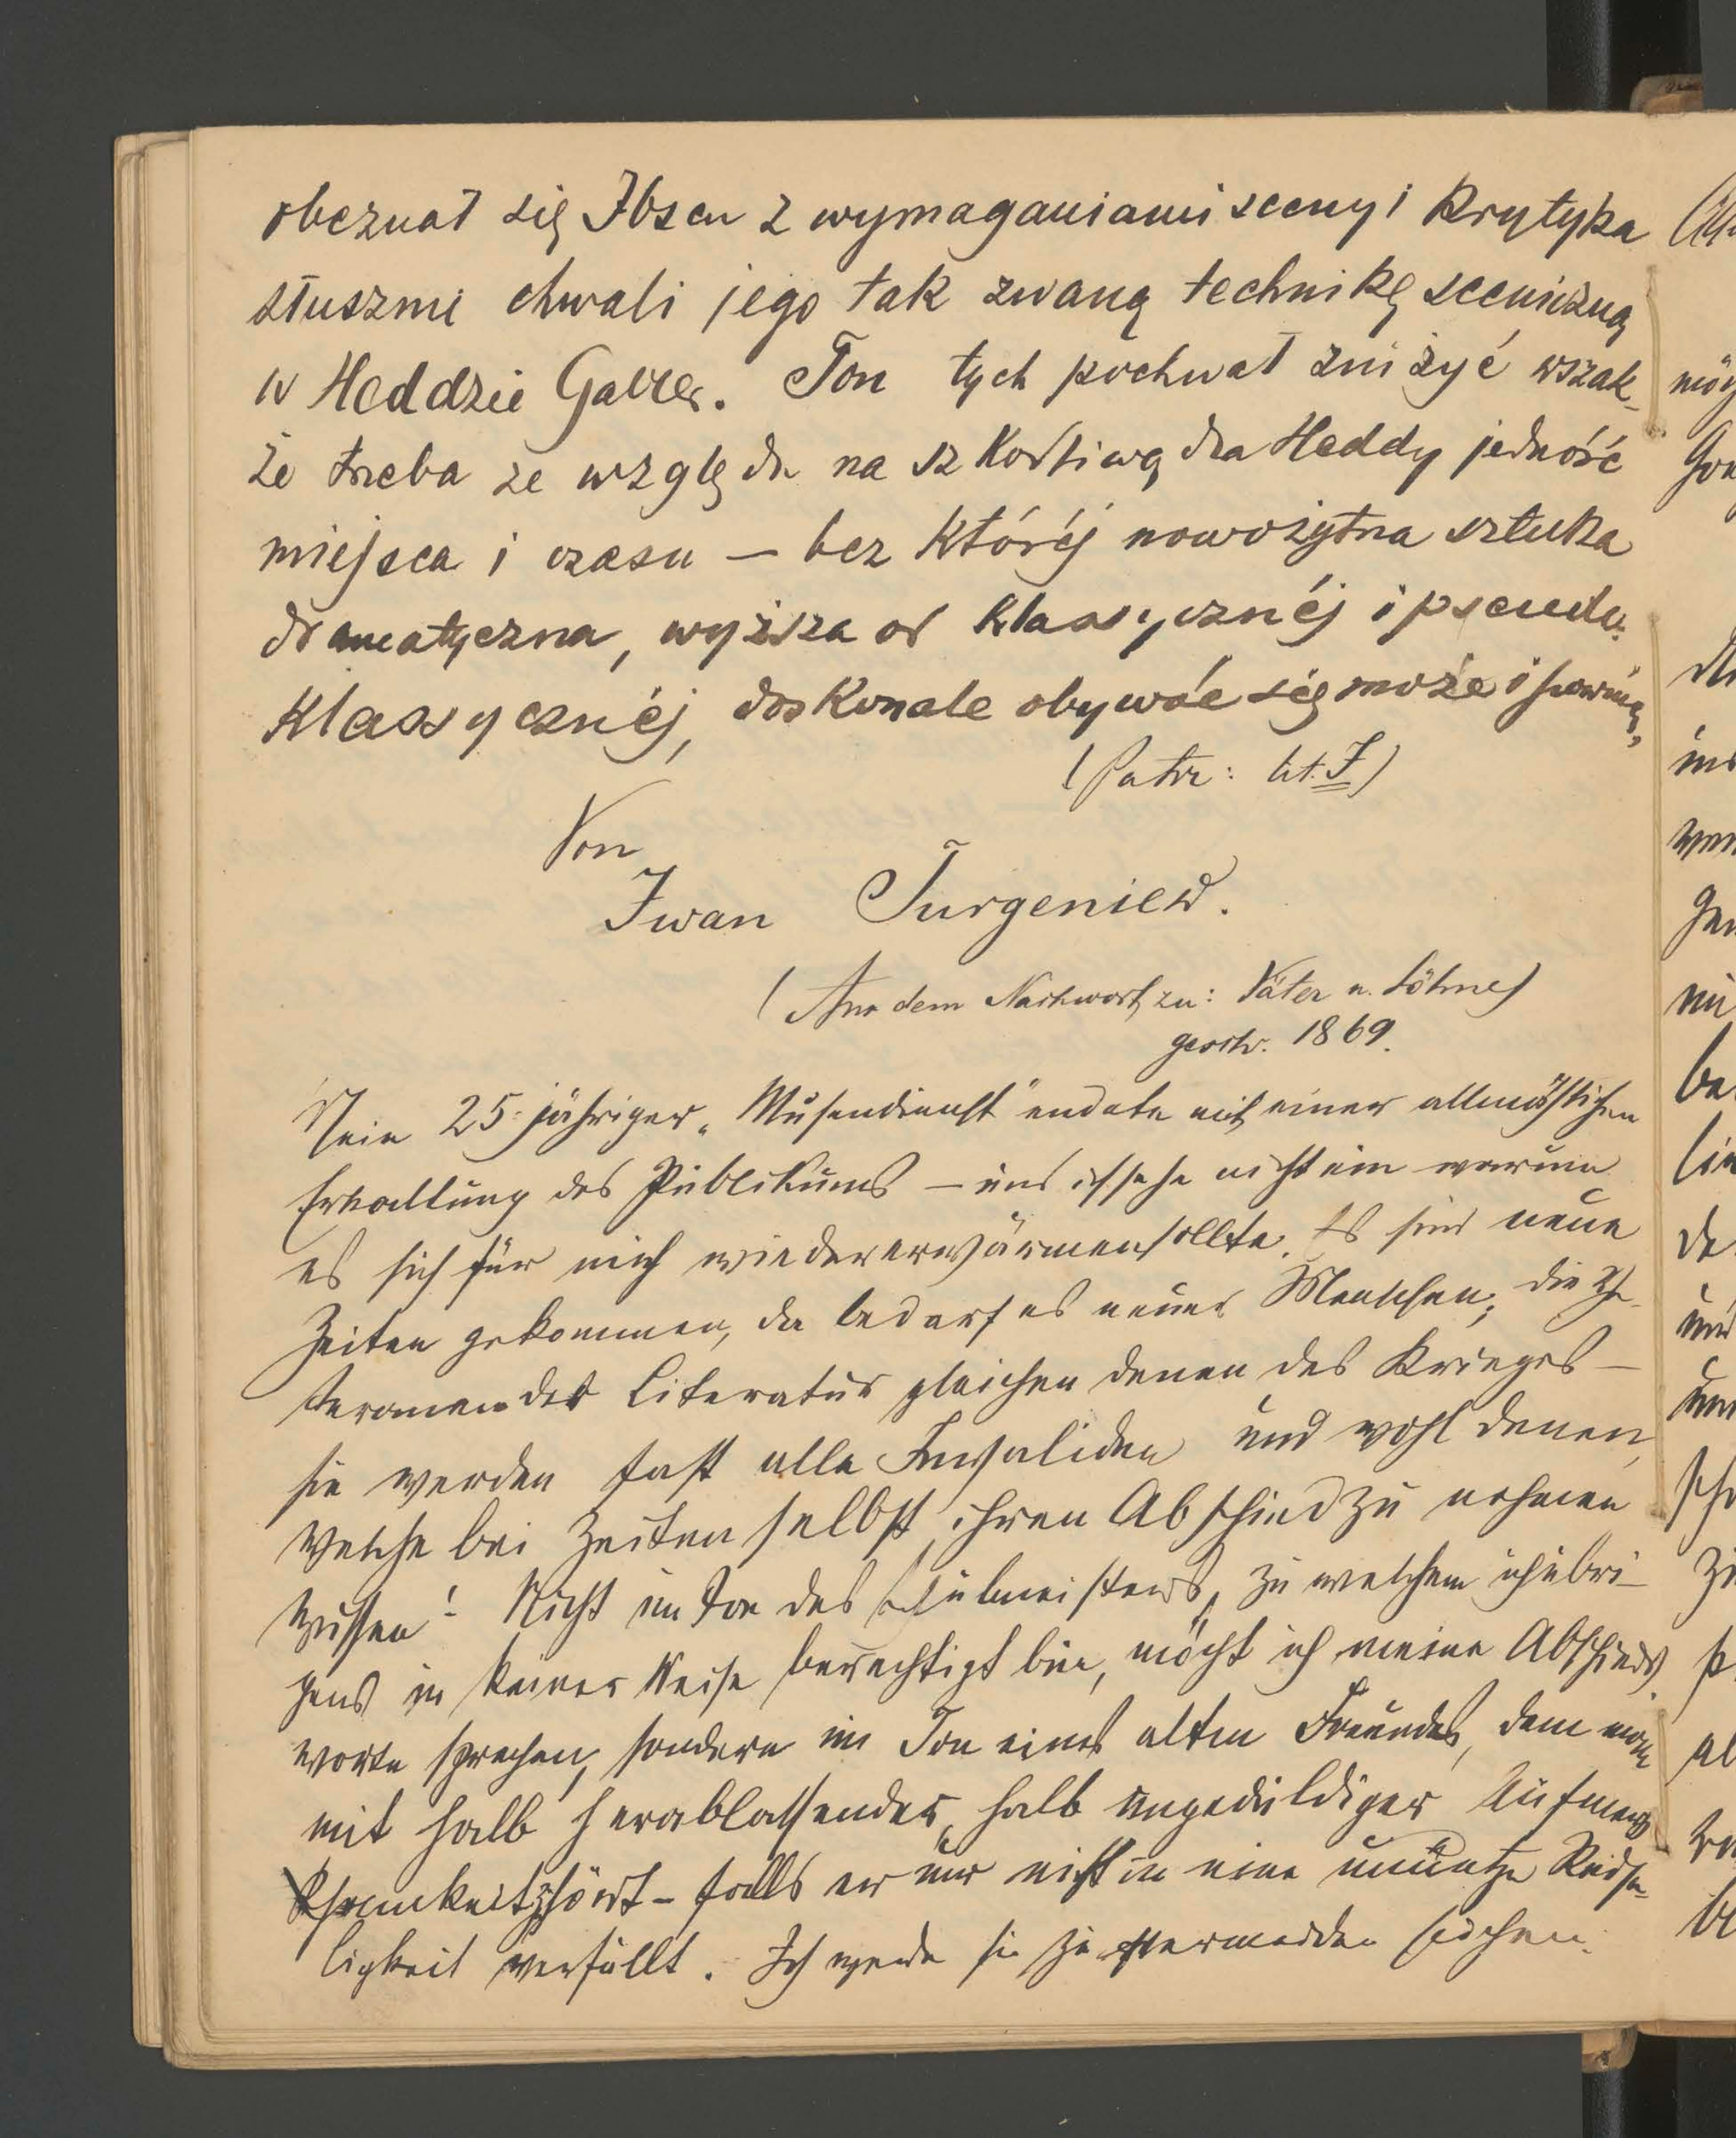 obeznał się Ibsen z wymaganiami sceny i krytyka
słusznie chwali jego tak zwaną technikę sceniczną
w Heddzie Gabler. Ton tych pochwał zniżyć wszak-
że trzeba ze względu na szkodliwą dla Heddy jedność
miejsca i czasu — bez któréj nowożytna sztuka
dramatyczna, wyższa od klassycznéj i pseudo-
klassycznéj, doskonale obywać się może i powinna,
(Patrz: lit. I)
Von
Iwan Turgeniew.
(Aus dem Nachwort zu: Väter u. Söhne)
geschr. 1869.
Mein 25-jähriger „Musendienst" endete mit einer allmählichen
Erkaltung des Publikums — und ich sehe nicht ein warum
es sich für mich wiedererwärmen sollte. Es sind neue
Zeiten gekommen, da bedarf es neuer Menschen; die Ve-
teranen der Literatur gleichen denen des Krieges —
sie werden fast alle Invaliden und wohl denen,
welche bei Zeiten selbst ihren Abschied zu nehmen
wissen! Nicht im Ton des Schulmeisters, zu welchem ich übri-
gens in keiner Weise berechtigt bin, möcht ich meine Abschieds
worte sprechen, sondern im Ton eines alten Freundes, dem man
mit halb herablassender, halb ungeduldiger Aufmerk
samkeit zuhört – falls er nur nicht in eine unnütze Redse-
ligkeit verfällt. Ich werde sie zu vermeiden suchen.